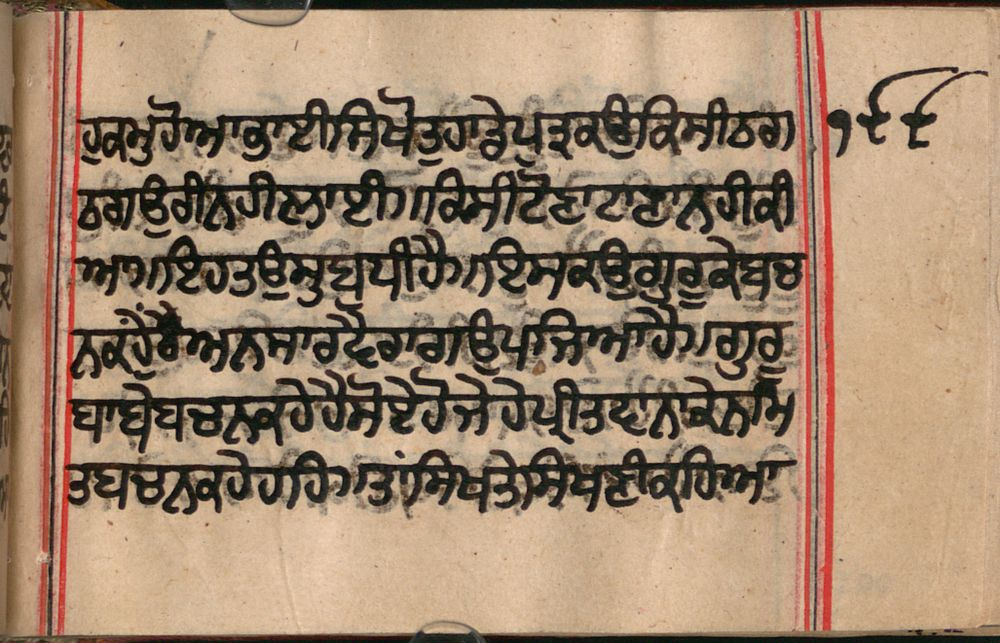 ਹੁਕਮੁਹੋਆਭਾਈਸਿਖੋਤੁਹਾਡੇਪੁਤ੍ਰਕਉਕਿਸੀਠਗ
ਠਗਉਰੀਨਹੀਲਾਈ॥ਕਿਸੀਟੋਣਾਟਾਣਾਨਹੀਕੀ
ਆ॥ਇਹਤਉਸੁਬਧੀਹੈ॥ਇਸਕਉਗੁਰੂਕੇਬਚ
ਨਕਹੇਹੈਅਨਸਾਰਵੈਰਾਗਉਪਜਿਆਹੈ॥ਗੁਰੂ
ਬਾਬੇਬਚਨਕਹੇਹੈਸੋਏਹੋਜੇਹੇਪ੍ਰੀਤਵਾਨਕੇਨਮਿ
ਤਬਚਨਕਹੇਹਹਿ॥ਤਾਂਸਿਖਤੇਸਿਖਣੀਕਹਿਆ
੧੯੯